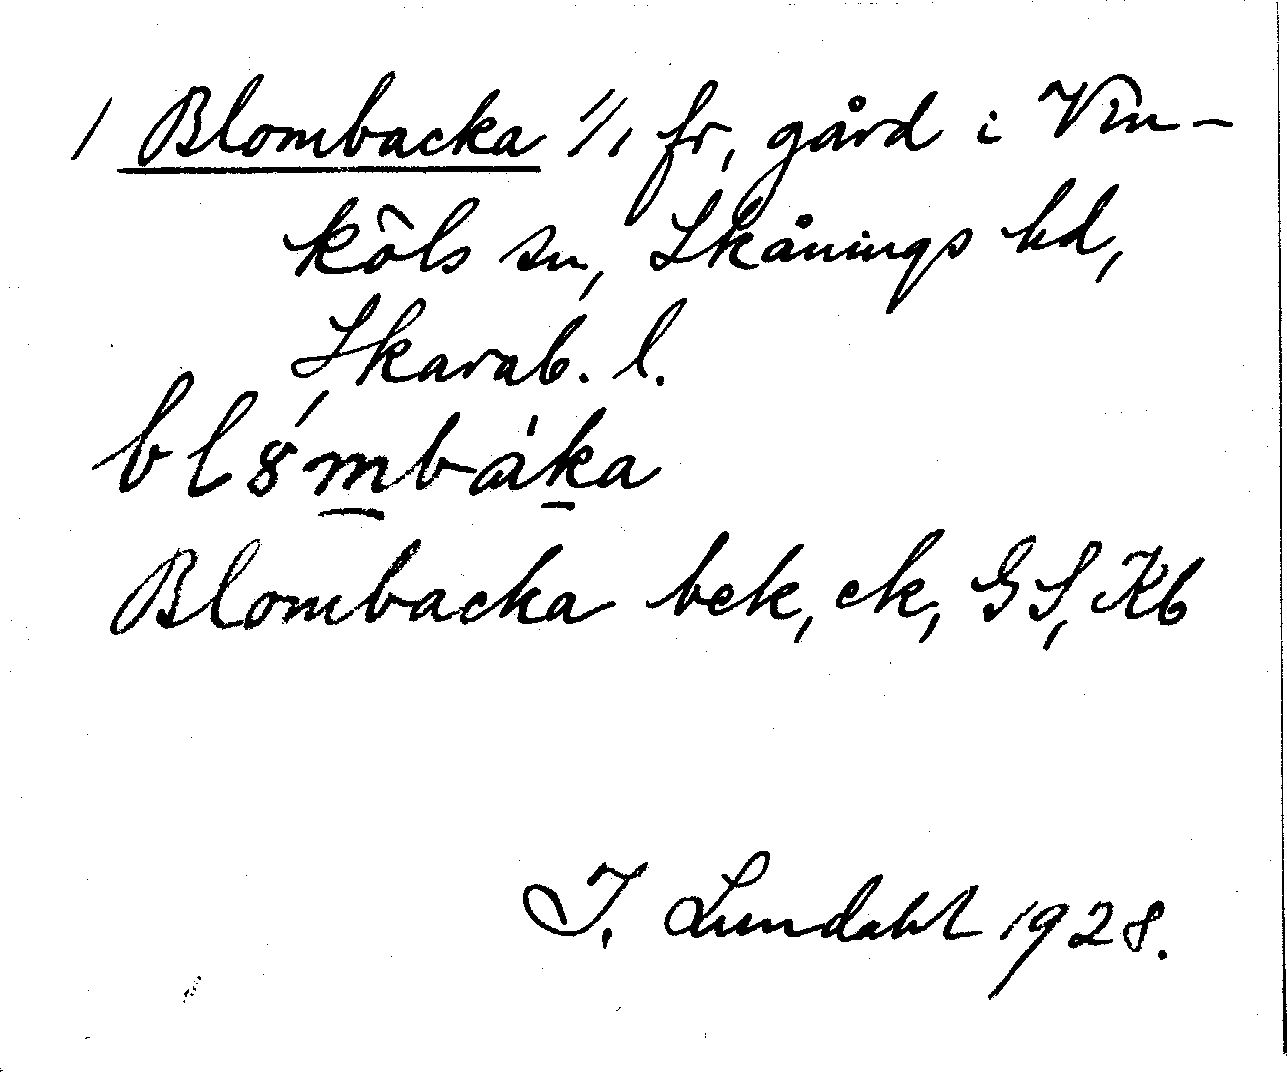 1 Blombacka 1/1 fr, gård i Vin-
köls sn, Skånings hd,
Skarab. l.
bl8́mbàka
Blombacka bek, ek, GS, Kb
I. Lundahl 1928.